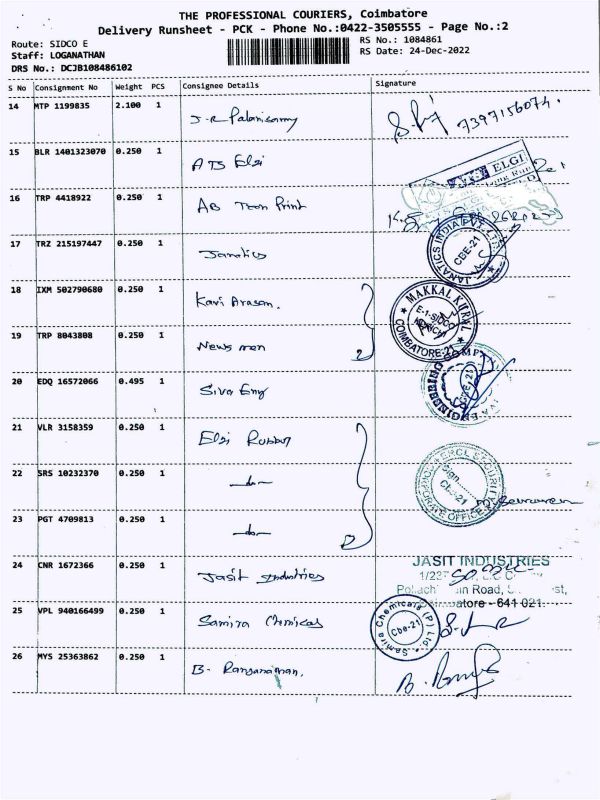 THE PROFESSIONAL COURIERS, Coimbatore
Delivery Runsheet - PCK - Phone No.:0422-3505555 - Page No.:2
Route: SIDCO E RS No.: 1084861
Staff: LOGANATHAN RS Date: 24-Dec-2022
DRS No.: DCJB108486102
S No Consignment No Weight PCS Consignee Details Signature
14 MTP 1199835 2.100 1 J-R Palanisamy 7397156074.
15 BLR 1401323070 0.250 1 ATS Elgi ELGI
16 TRP 4418922 0.250 1 AB Toon Print
17 TRZ 215197447 0.250 1 Janatics JANATICS INDIA PVT. LTD. CBE-21
18 IXM 502790680 0.250 1 Kavi Arasan. MAKKAL KURAL E-1-SIDCO KURICHI COIMBATORE-21
19 TRP 8043808 0.250 1 News men 2
20 EDQ 16572066 0.495 1 Siva Eng ENGINEERING COMP CBE-21
21 VLR 3158359 0.250 1 Elgi Rubber
22 SRS 10232370 0.250 1 —do— SECURITY Sign CBE-21 CORPORATE OFFICE
23 PGT 4709813 0.250 1 —do—
24 CNR 1672366 0.250 1 Jasit Industries JASIT INDUSTRIES
Pollachi Main Road,
Coimbatore - 641 021.
25 VPL 940166499 0.250 1 Samira Chemicals Samira Chemicals (P) Ltd Cbe-21
26 MYS 25363862 0.250 1 B- Ranganathan.